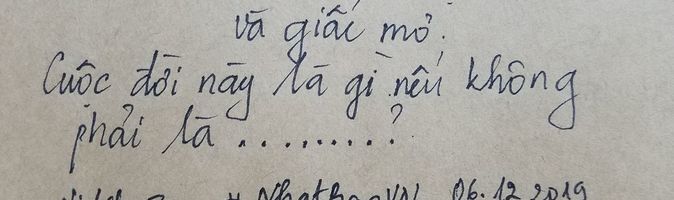 và giấc mơ.
Cuộc đời này là gì nếu không
phải là .........?
06.12.2019